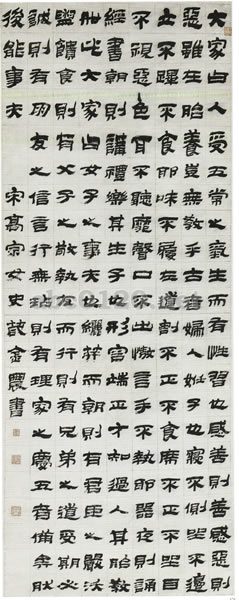 大家曰人受五常之理生而有性習也感善則善感惡則
惡雖在胎養豈無教乎古者婦人妊子也寢不側坐不邊
立不跛不食邪味不履左道割不正不食席不正不坐目
不視惡色耳不聽靡聲口不出傲言手不執邪器夜則誦
經書朝則講禮樂其生子也形容端正才知過人其胎教
如此大家曰女子之事夫也纚笄而朝則有君臣之嚴沃
盥饋食則有父子之敬報反而行則有兄弟之道受期必
誠則有朋友之信言行無玷則有理家之度五者備矣然
後能事夫 宋高宗女史箴金農書